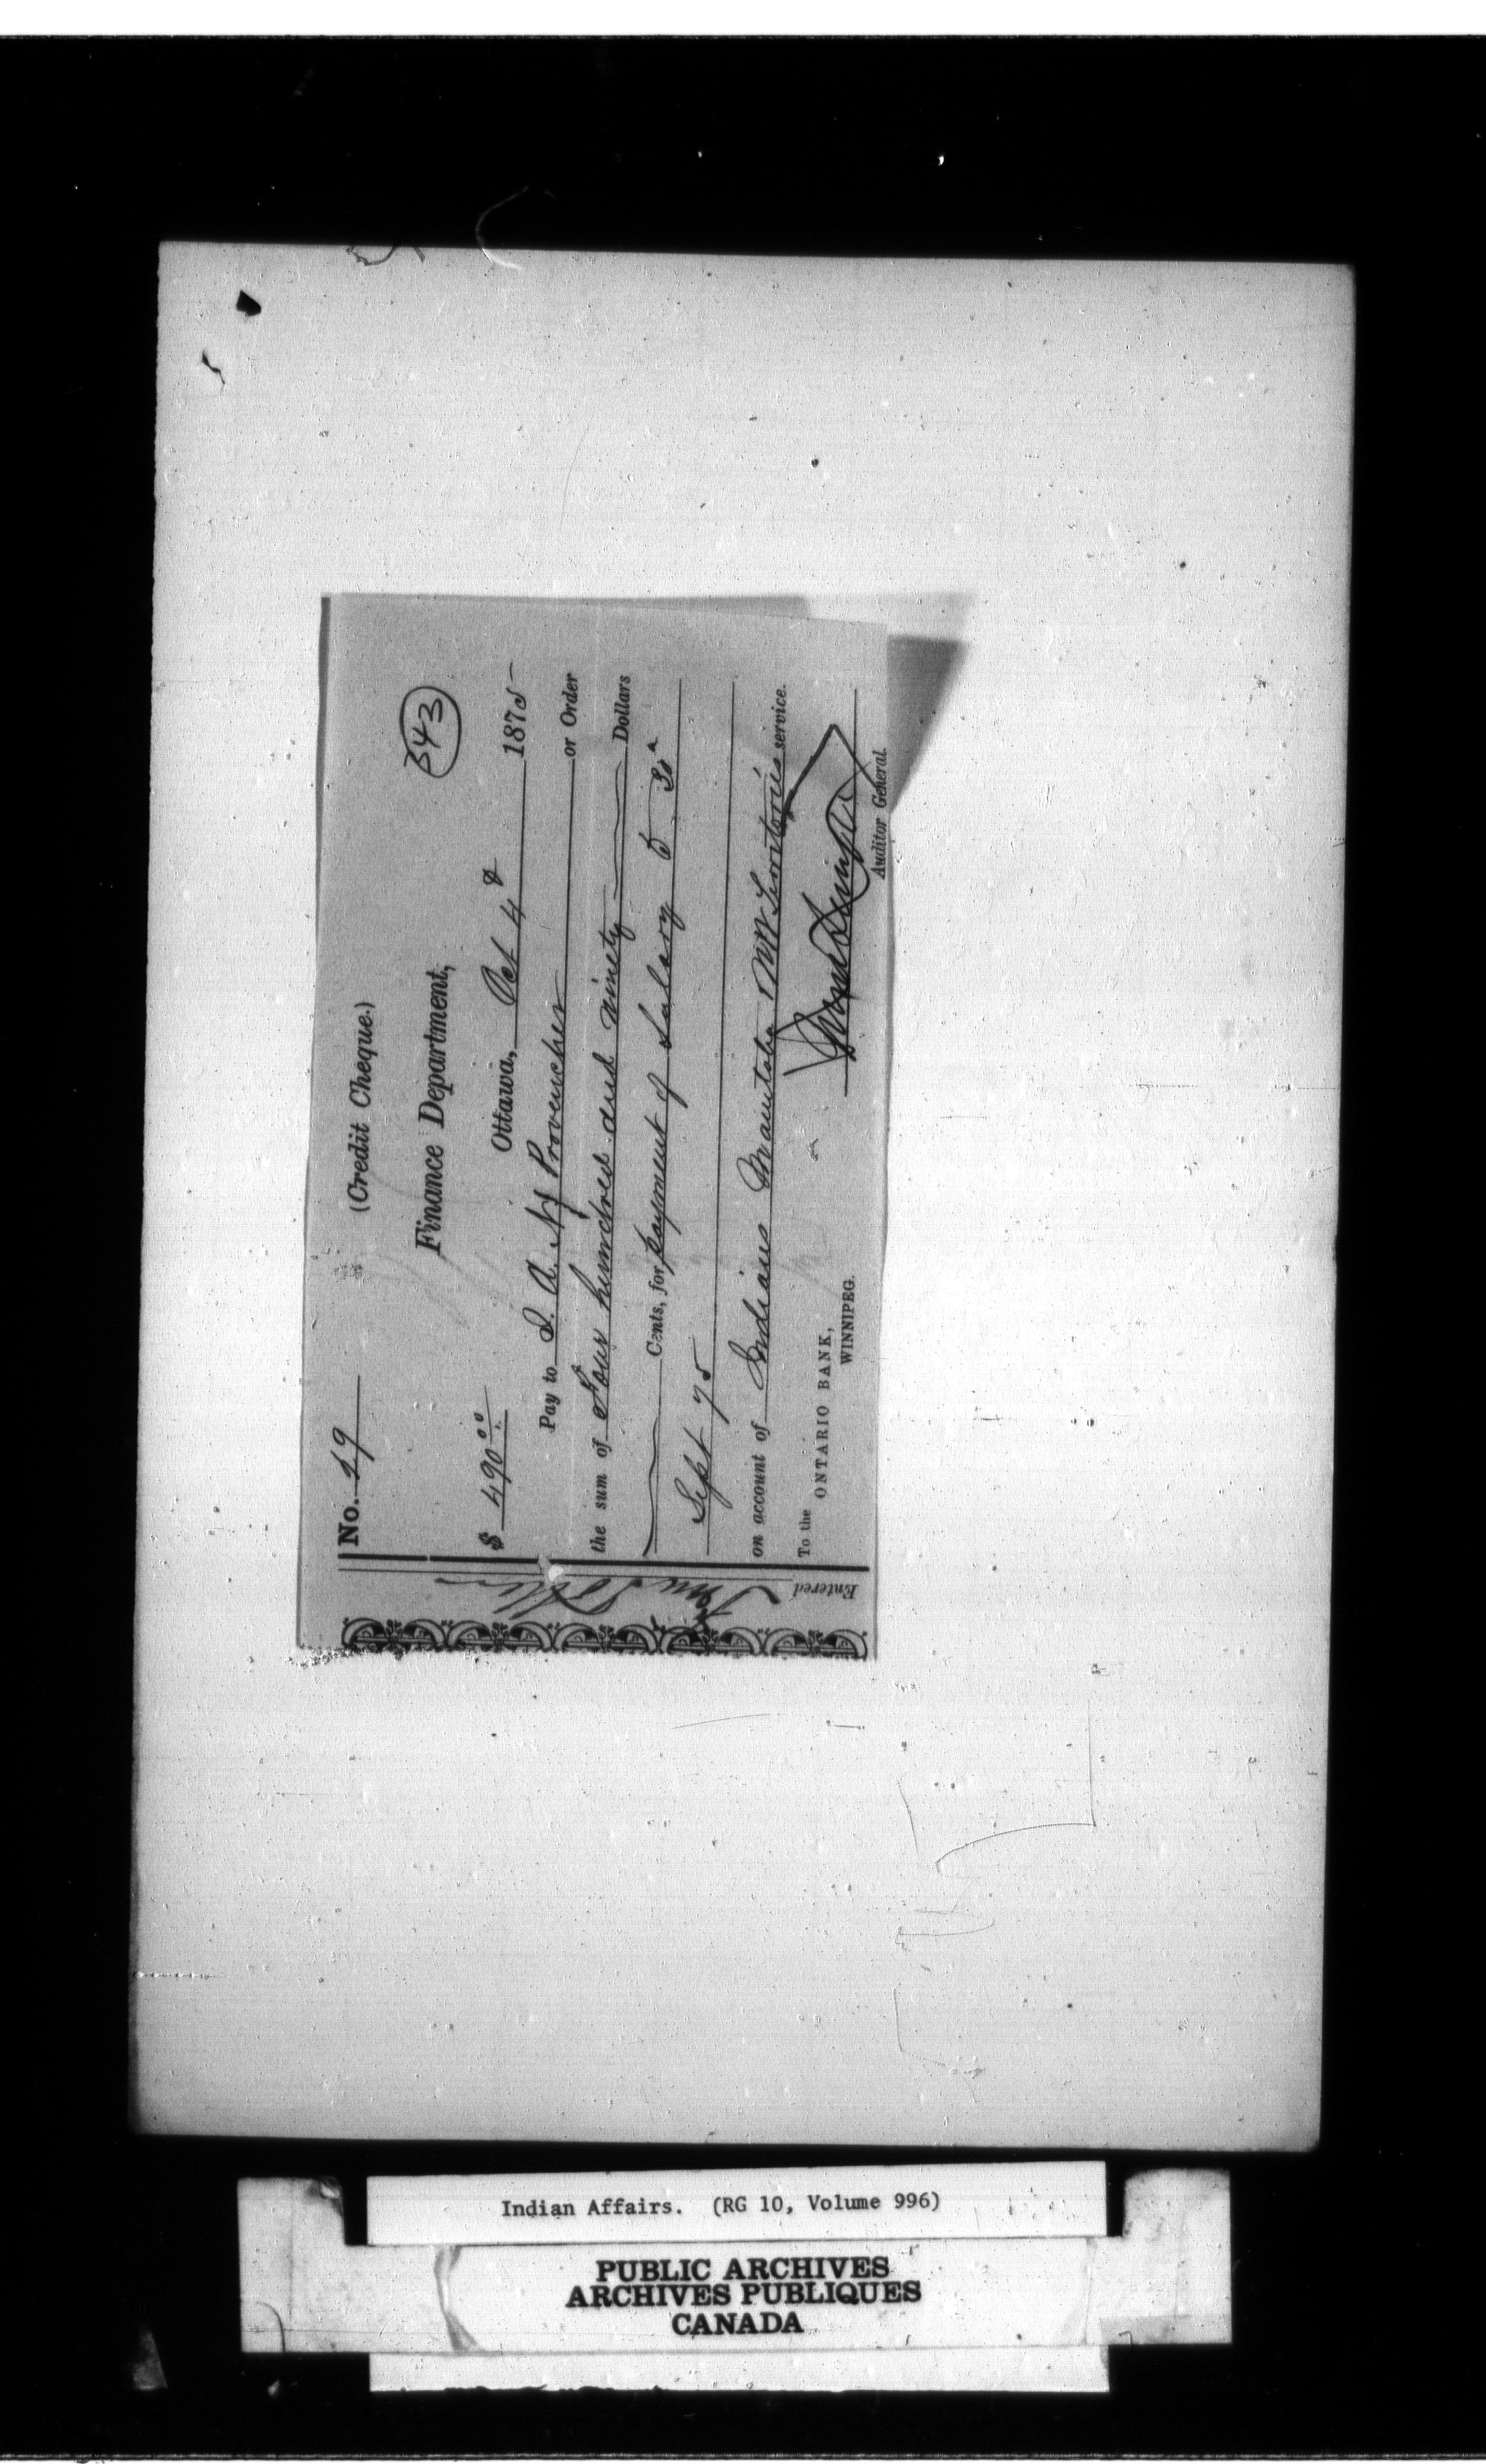 No. 29 (Credit Cheque.)
343
Finance Department,
$ 490 00 Ottawa, Oct 4 1875
Pay to J. A. N. Provencher or Order
the sum of Four hundred and ninety Dollars
Cents, for payment of Salary to 30
Sept 75
on account of Indians Manitoba NW Territories service.
To the
ONTARIO BANK,
WINNIPEG.
Auditor General.
Entered
Indian Affairs. (RG 10, Volume 996)
PUBLIC ARCHIVES
ARCHIVES PUBLIQUES
CANADA